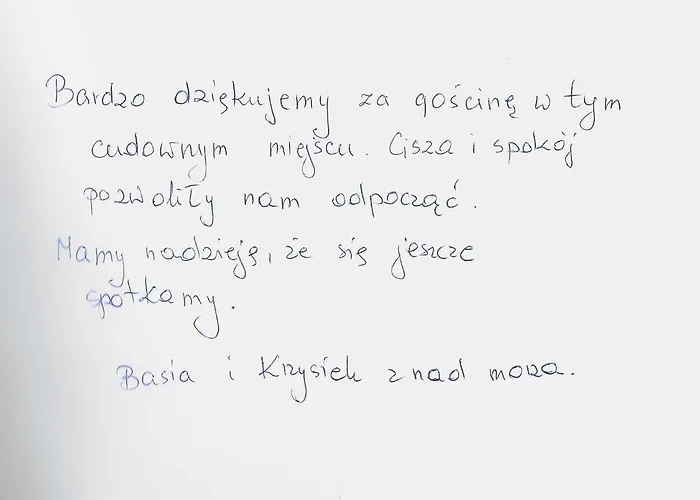 Bardzo dziękujemy za gościnę w tym
cudownym miejscu. Cisza i spokój
pozwoliły nam odpocząć.
Mamy nadzieję, że się jeszcze
spotkamy.
Basia i Krzysiek znad morza.